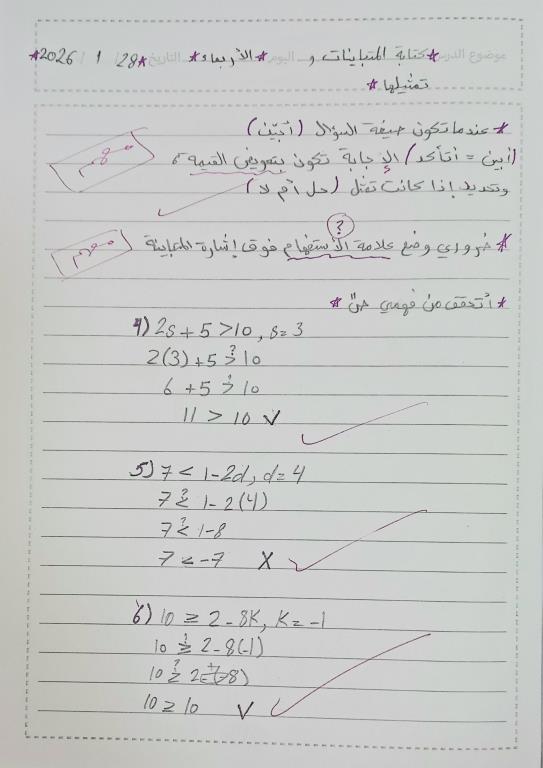 موضوع الدرس *كتابة المتباينات و اليوم *الأربعاء* التاريخ *28 / 1 / 2026*
تمثيلها*
*عندما تكون صيغة السؤال (أبيّن)
(أبين = أتأكد) الإجابة تكون بتعويض القيمة،
مهم
وتحديد إذا كانت تمثل (حل أم لا)
?
*ضروري وضع علامة الاستفهام فوق إشارة المتباينة
مهم
*أتحقق من فهمي ص*
4) 2s + 5 > 10 , s = 3
2(3) + 5 >? 10
6 + 5 >? 10
11 > 10 √
5) 7 < 1 - 2d , d = 4
7 <? 1 - 2(4)
7 <? 1 - 8
7 < -7 X
6) 10 ≥ 2 - 8K , K = -1
10 ≥? 2 - 8(-1)
10 ≥? 2 - (-8)
10 ≥ 10 √